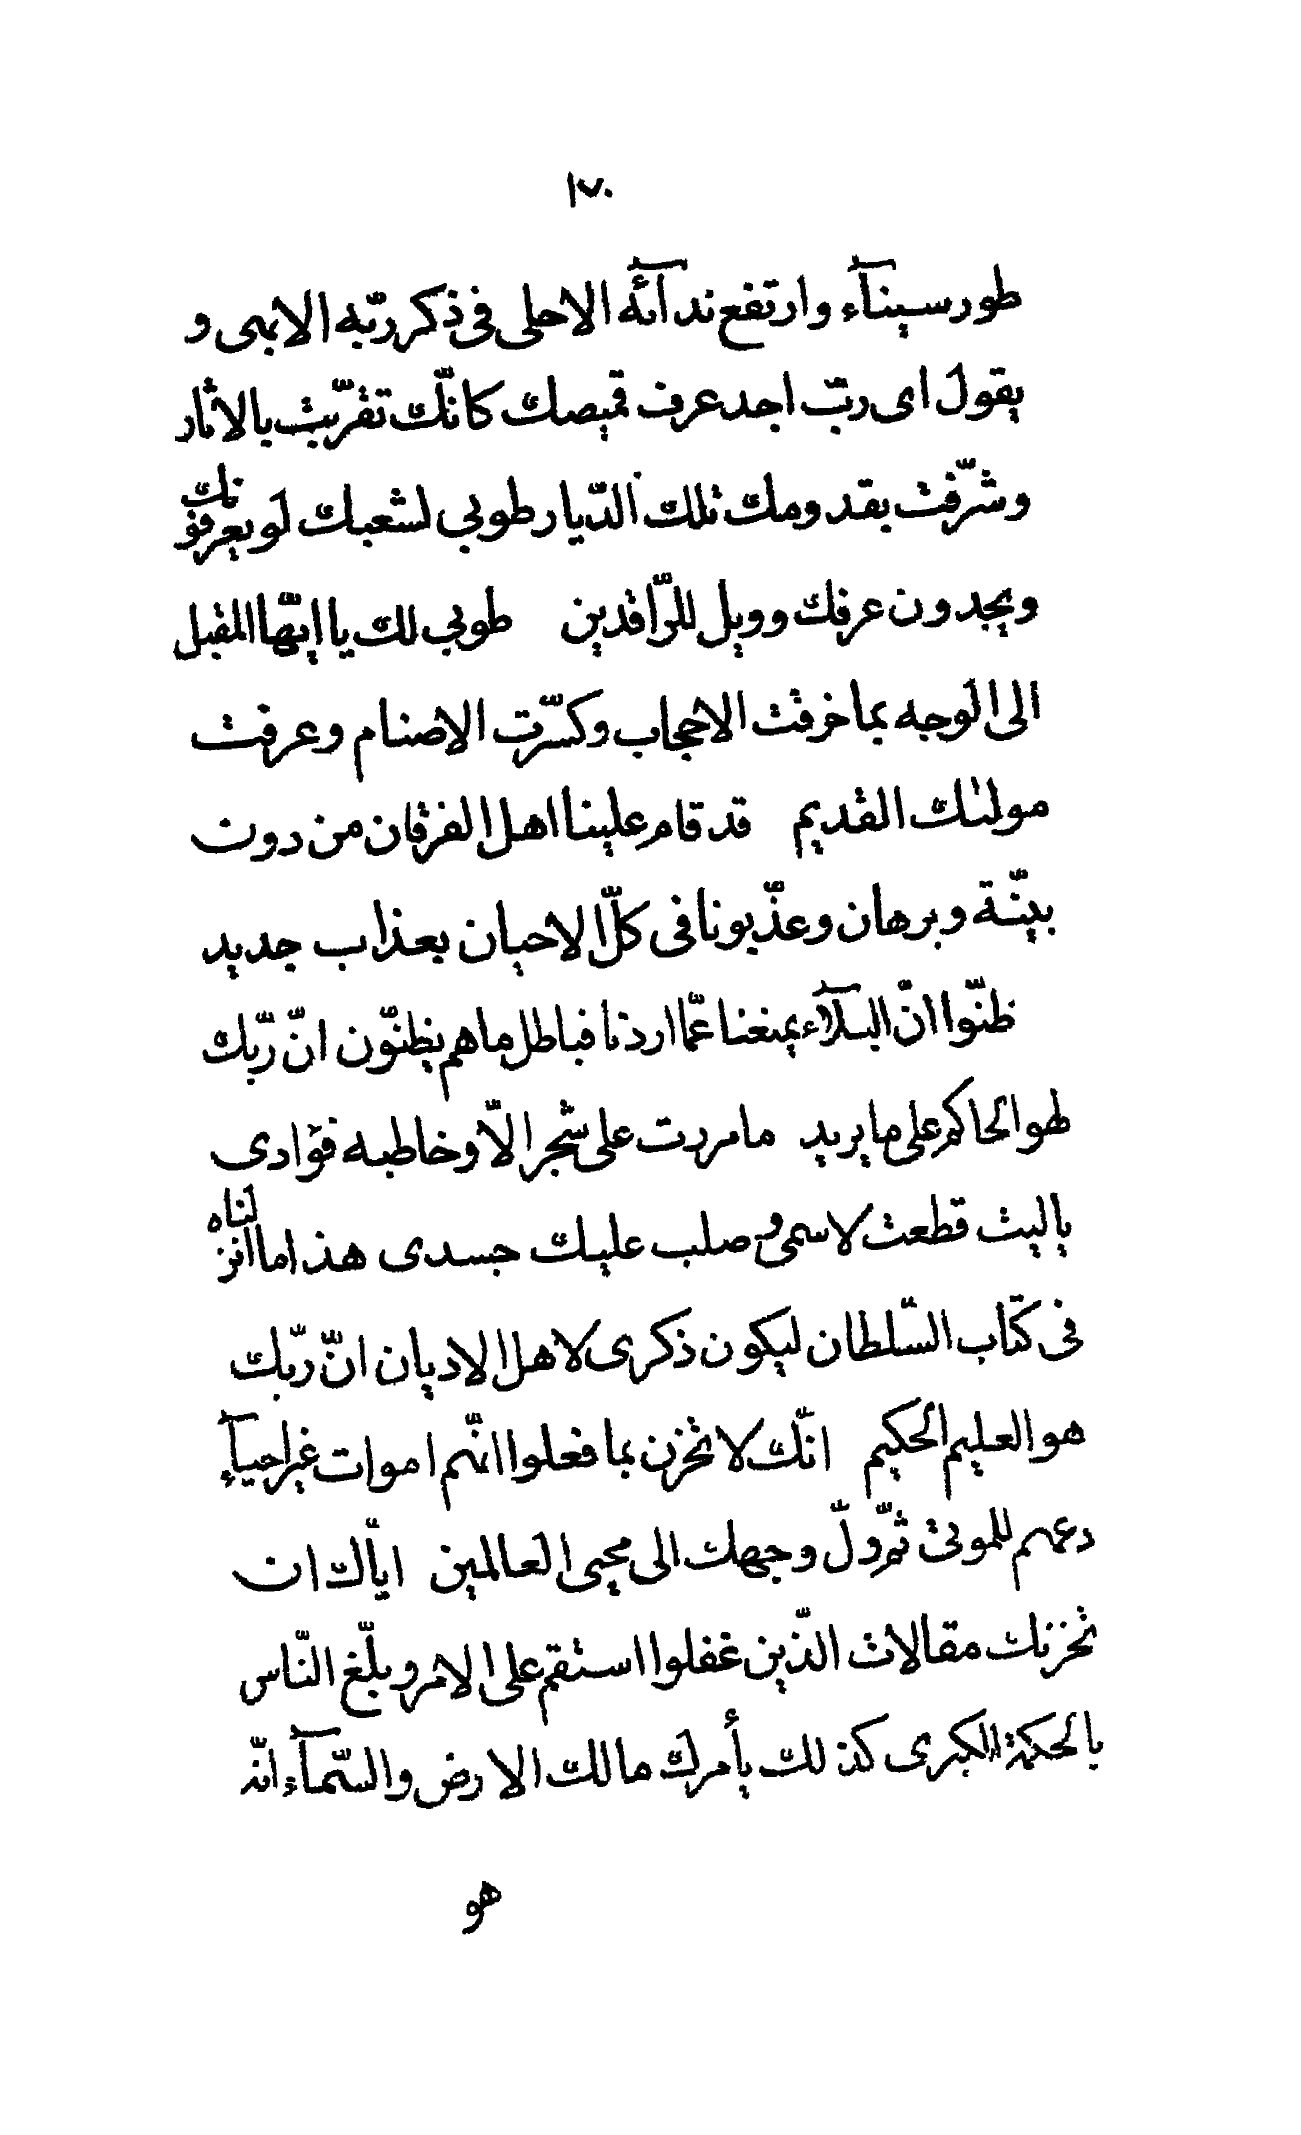 ١٧٠
طور سینآء وارتفع ندآئه الاحلی فی ذکر ربّه الابهی و
یقول ای ربّ اجد عرف قمیصك کانّك تقرّبت بالاثار
وشرّفت بقدومك تلك الدّیار طوبی لشعبك لو یعرفونك
ویجدون عرفك وویل للرّاقدین طوبی لك یا ایّها المقبل
الی الوجه بما خرقت الاحجاب وکسّرت الاصنام وعرفت
مولیٰك القدیم قد قام علینا اهل الفرقان من دون
بیّنة وبرهان وعذّبونا فی کلّ الاحیان بعذاب جدید
ظنّوا انّ البلآء یمنعنا عمّا اردنا فباطل ما هم یظنّون انّ ربّك
لهو الحاکم علی ما یرید ما مررت علی شجر الّا وخاطبه فؤادی
یا لیت قطعت لاسمی وصلب علیك جسدی هذا ما انزلناه
فی کتاب السّلطان لیکون ذکری لاهل الادیان انّ ربّك
هو العلیم الحکیم انّك لا تحزن بما فعلوا انّهم اموات غیر احیآء
دعهم للموتی ثمّ ولّ وجهك الی محیی العالمین ایّاك ان
تحزنك مقالات الّذین غفلوا استقم علی الامر وبلّغ النّاس
بالحکمة الکبری کذلك یأمرك مالك الارض والسّمآء انّه
هو